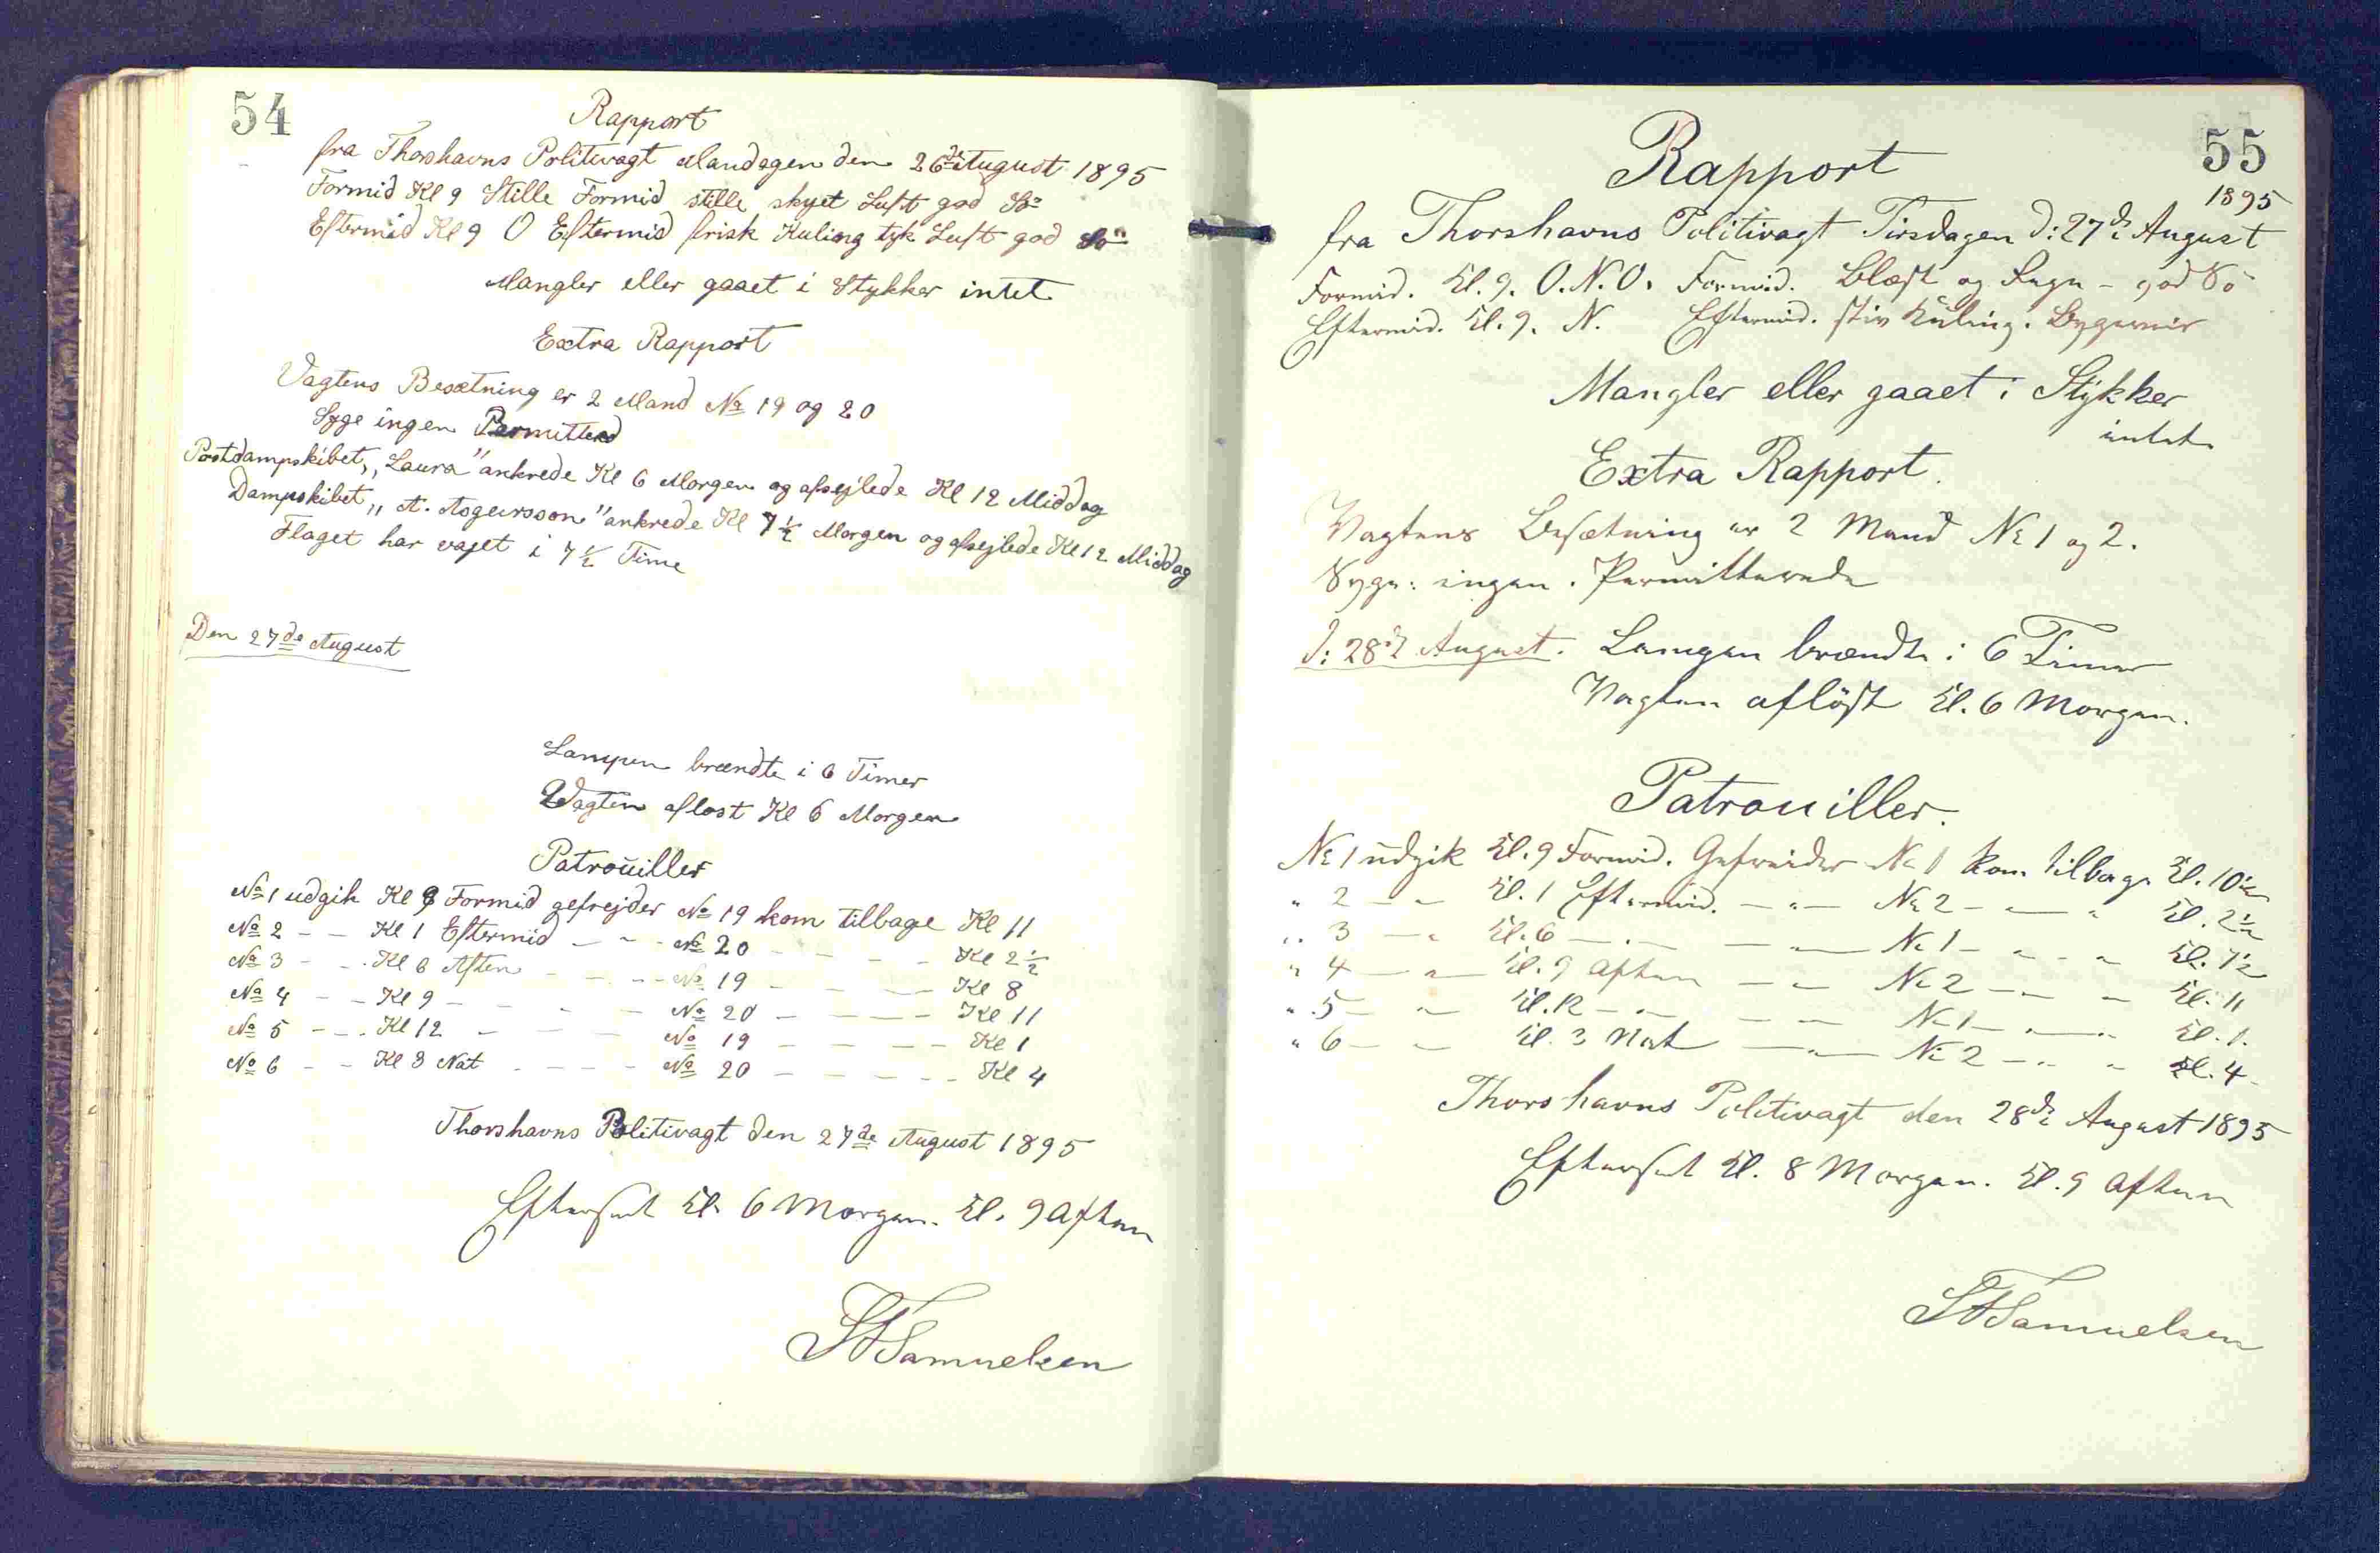 54
Rapport
fra Thorshavns Politivagt Mandagen den 26de August 1895
Formid Kl 9 Stille Formid stille skyet Luft god Sö
Eftermid Kl 9 O Eftermid frisk Kuling tyk Luft god Sö
Mangler eller gaaet i Stykker intet
Extra Rapport
Vagtens Besætning er 2 Mand No 19 og 20
Syge ingen Permitterd
Postdampskibet „Laura" ankrede Kl 6 Morgen og afsejlede Kl 12 Middag
Dampskibet „A. Asgeirsson" ankrede Kl 7½ Morgen og afsejlede Kl 12 Middag
Flaget har vajet i 7½ Time
Den 27de August
Lampen brændte i 6 Timer
Vagten aflost Kl 6 Morgen
Patrouiller
No 1 udgik Kl 9 Formid gefrejder No 19 kom tilbage Kl 11
No 2 - - Kl 1 Eftermid - - - No 20 - - - - Kl 2½
No 3 - - Kl 6 Aften - - - No 19 - - - - Kl 8
No 4 - - Kl 9 - - - - No 20 - - - - Kl 11
No 5 - - Kl 12 - - - No 19 - - - - Kl 1
No 6 - - Kl 3 Nat - - - - No 20 - - - - Kl 4
Thorshavns Politivagt den 27de August 1895
Efterset Kl. 6 Morgen. Kl. 9 Aften
Samuelsen
55
Rapport
1895
fra Thorshavns Politivagt Tirsdagen d: 27de August
Formid. Kl. 9. O.N.O. Formid. Blæst og Regn - god Sö
Eftermid. Kl. 9. N. Eftermid. stiv Kuling. Bygeveir
Mangler eller gaaet i Stykker
intet
Extra Rapport.
Vagtens Besætning er 2 Mand No 1 og 2.
Syge: ingen. Permitterede
d: 28de August. Lampen brændte i 6 Timer
Vagten aflöst Kl. 6 Morgen.
Patrouiller.
No 1 udgik Kl. 9 Formid. Gefreider No 1 kom tilbage Kl. 10½
" 2 — " Kl. 1 Eftermid. — " — No 2 — " — " Kl. 2½
" 3 — " Kl. 6 — " — — " — No 1 — " — " Kl. 7½
" 4 — " — Kl. 9 Aften — " — No 2 — " — " Kl. 11
" 5 — " Kl. 12 — " — — " — No 1 — " — " Kl. 1.
" 6 — " Kl. 3 Nat — " — No 2 — " — " Kl. 4
Thorshavns Politivagt den 28de August 1895
Efterset Kl. 8 Morgen. Kl. 9 Aften
Samuelsen